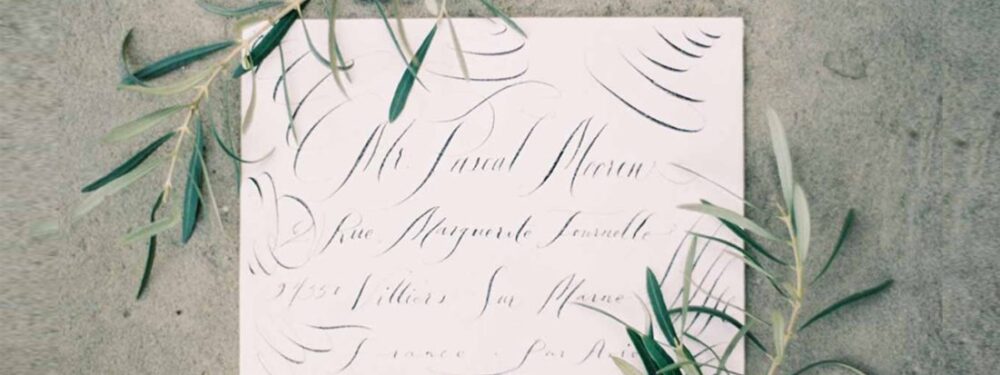 Mr. Pascal Meeren
2 Rue Marguerite Tournelle
94350 Villiers Sur Marne
France . Par Avion